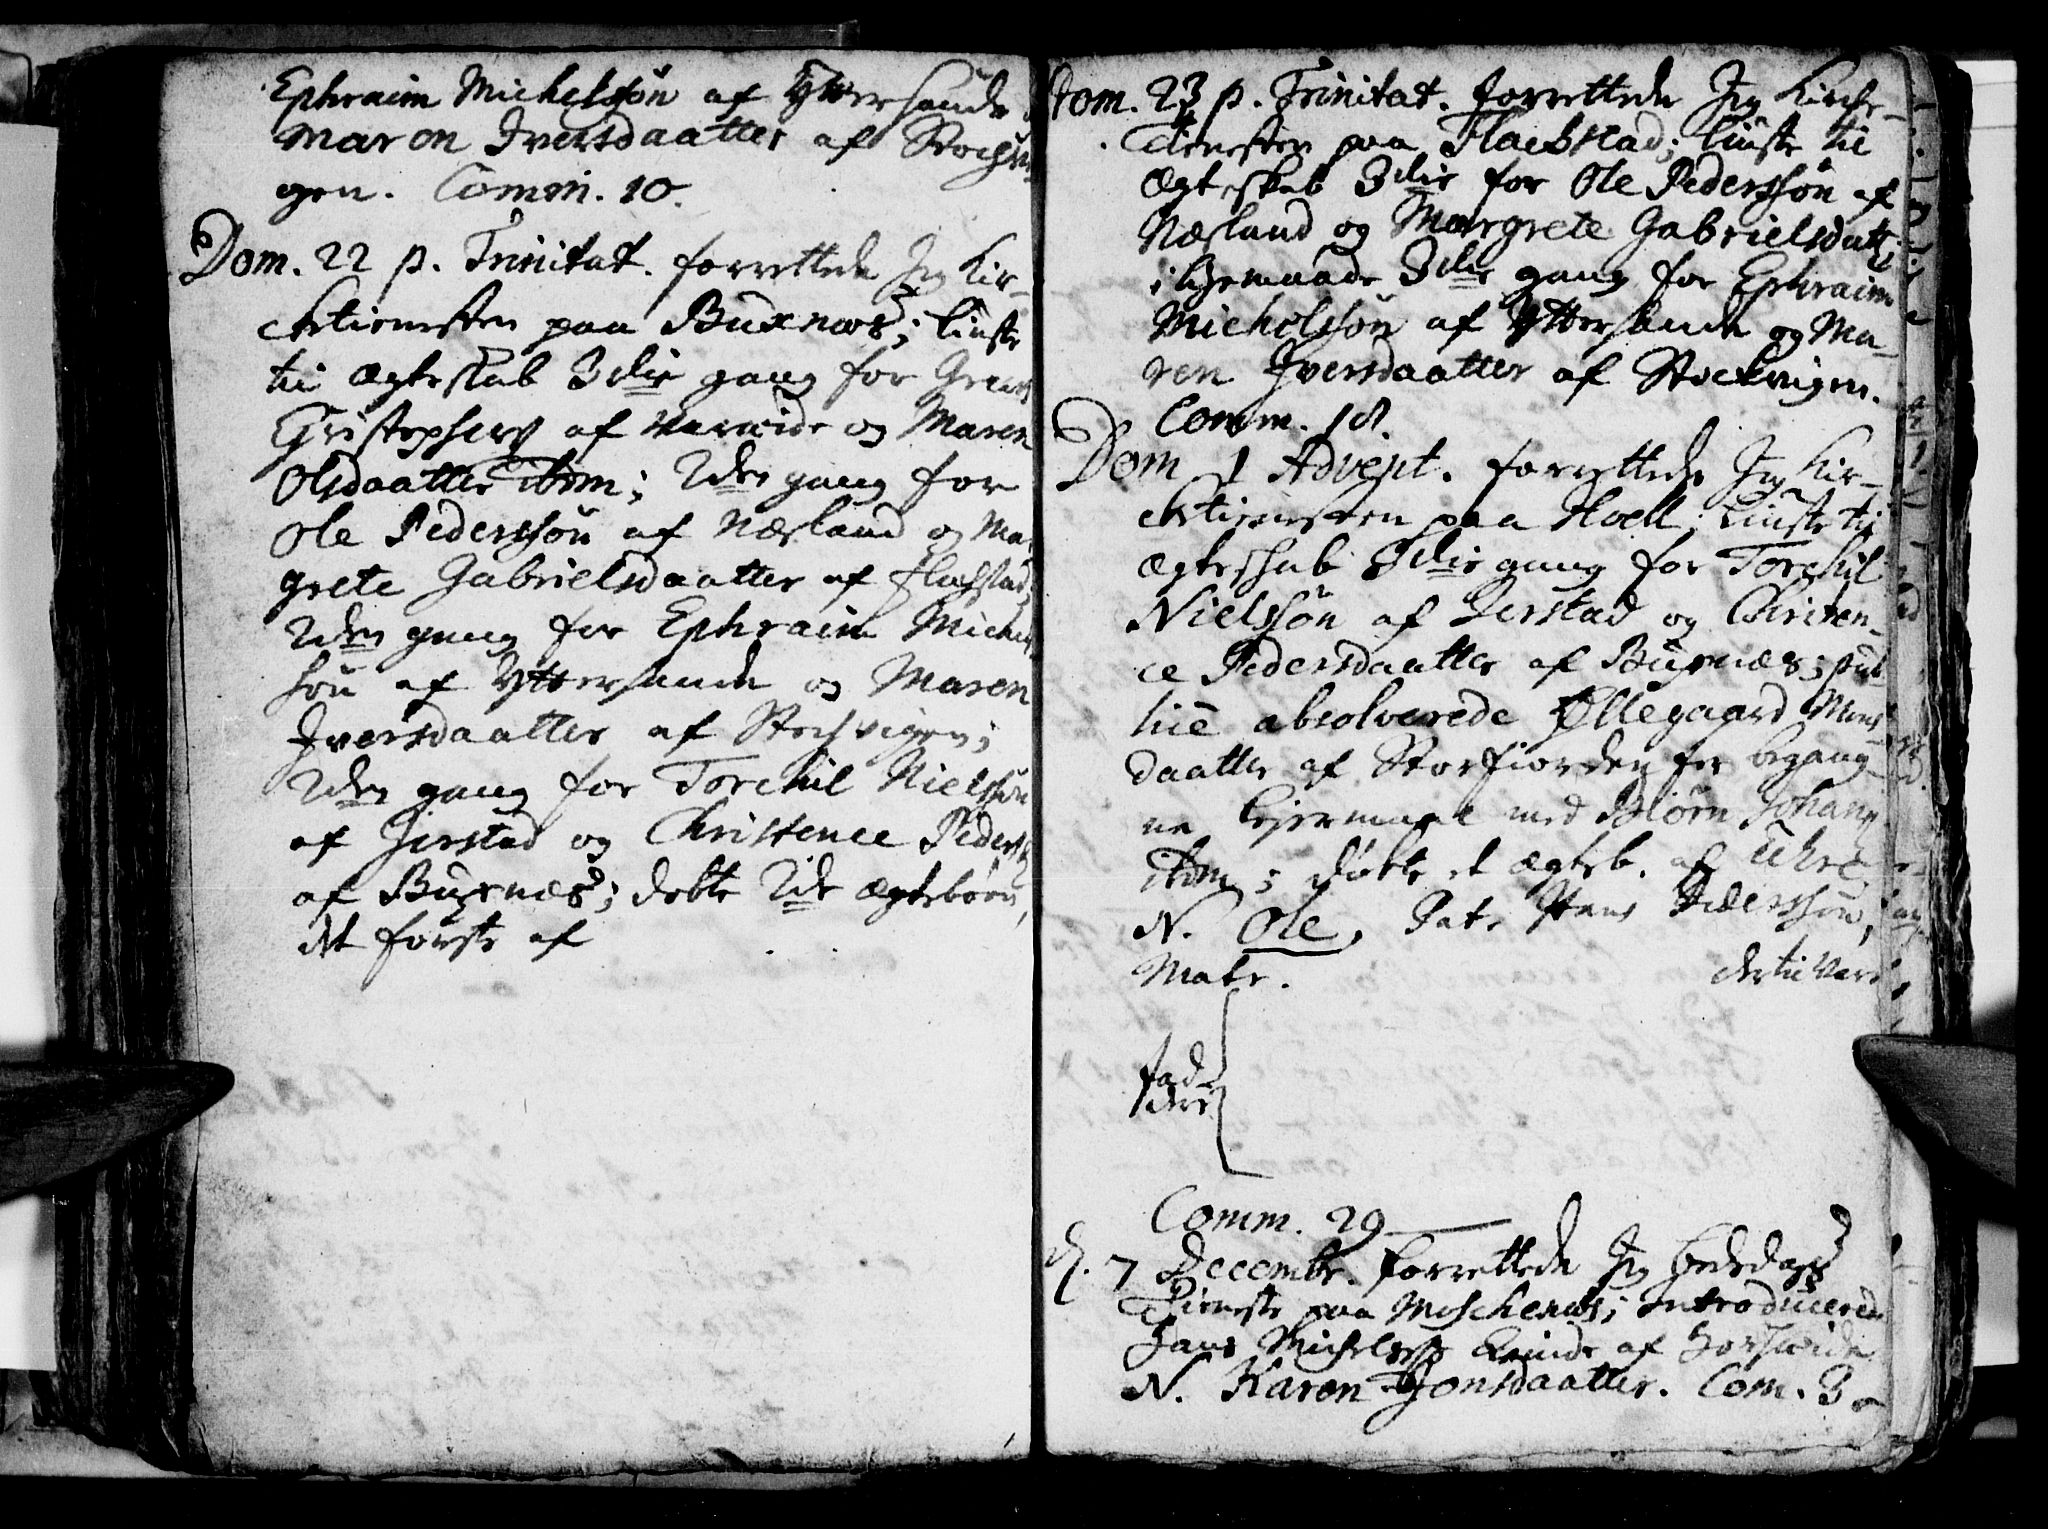 Ephraim Michelssøn af Yttersande
Maren Iversdaatter af Stochvi-
gen. Comm. 10.
Dom. 22 p. Trinitat. forrettede Jeg Kir-
chetienesten paa Buxnæs; liuste
til Ægteskab 3die gang for
Christophers af og Maren
Olsdaatter ibdm; 2den gang for
Ole Pederssøn af Næsland og Mar-
grete Gabrielsdaatter af Flachstad;
2den gang for Ephraim Michels-
søn af Yttersande og Maren
Iversdaatter af Stochvigen;
2den gang for Torchil Nielssøn
af Jerstad og Christence Peders
af Buxnæs; døbte 2de ægtebørn,
det første af
Dom. 23 p. Trinitat. forrettede Jeg Kirche-
tienesten paa Flachstad; liuste til
Ægteskab 3die for Ole Pederssøn af
Næsland og Margrete Gabrielsdatt:
i ligemaade 3die gang for Ephraim
Michelssøn af Yttersande og Ma-
ren Iversdaatter af Stockvigen.
Comm. 18.
Dom 1 Advent. forrettede Jeg Kir-
chetienesten paa Hoell; liuste til
Ægteskab 3die gang for Torchil
Nielssøn af Jerstad og Christen-
ce Pedersdaatter af Buxnæs; pub-
licè absolverede Øllegaard Mons
daatter af Storfiorden for begang-
ne Leyermaal med Biørn Johans
ibdm; døbte et ægteb. af Uhre
N. Ole, Pat: Hans Pederssøn,
Mat:
der til vare
Fad-
dere
Comm. 29
d. 7 Decembr. forrettede Jeg Bededags
Tieneste paa Moschenæs; introducerede
Hans Michelss: Qvinde af
N. Karen Jonsdaatter. Com. 3